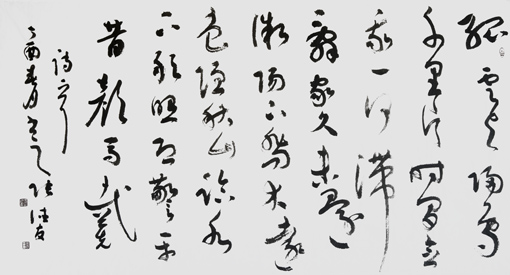 孤雲與歸鳥
千里片時間念
我一何滯
辭家久未還
微陽下喬木遠
色隱秋山臨水
不敢照恐驚平
昔顏馬戴
詩一首
丁酉春月書之